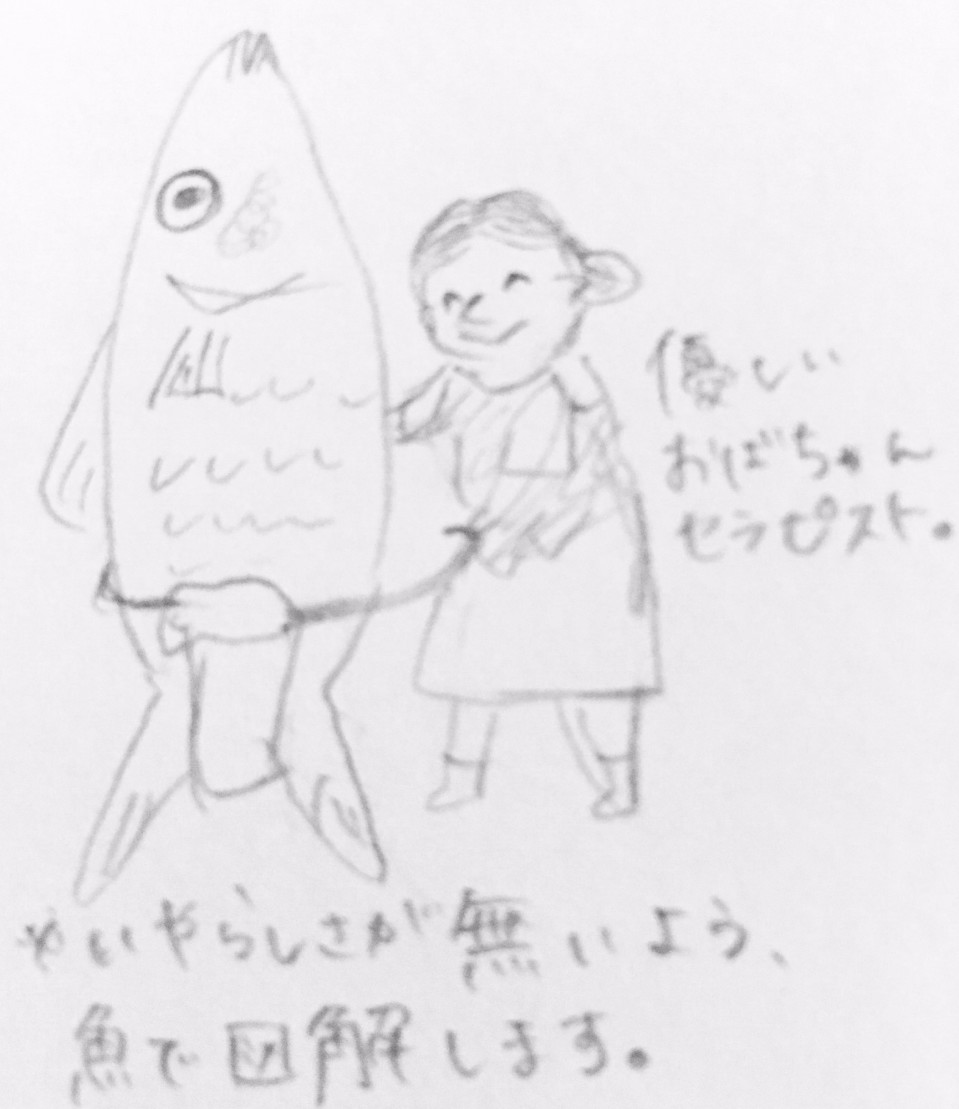 優しい
おばちゃん
セラピスト。
やいやらしさが無いよう、
魚で図解します。